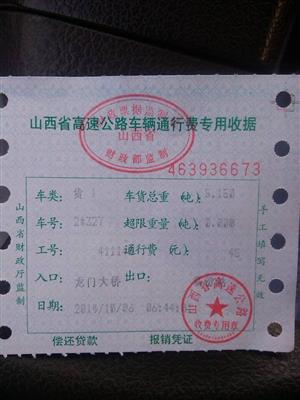 山西省高速公路车辆通行费专用收据
山西省
财政部监制
463936673
车类: 货1 车货总重(吨): 5.150
车号: 超限重量(吨): 0.000
工号: 4111 通行费(元): 45
入口: 龙门大桥 出口:
日期: 2014/10/06 06:44
偿还贷款 报销凭证
山西省财政厅监制
手工填写无效
山西省高速公路
收费专用章